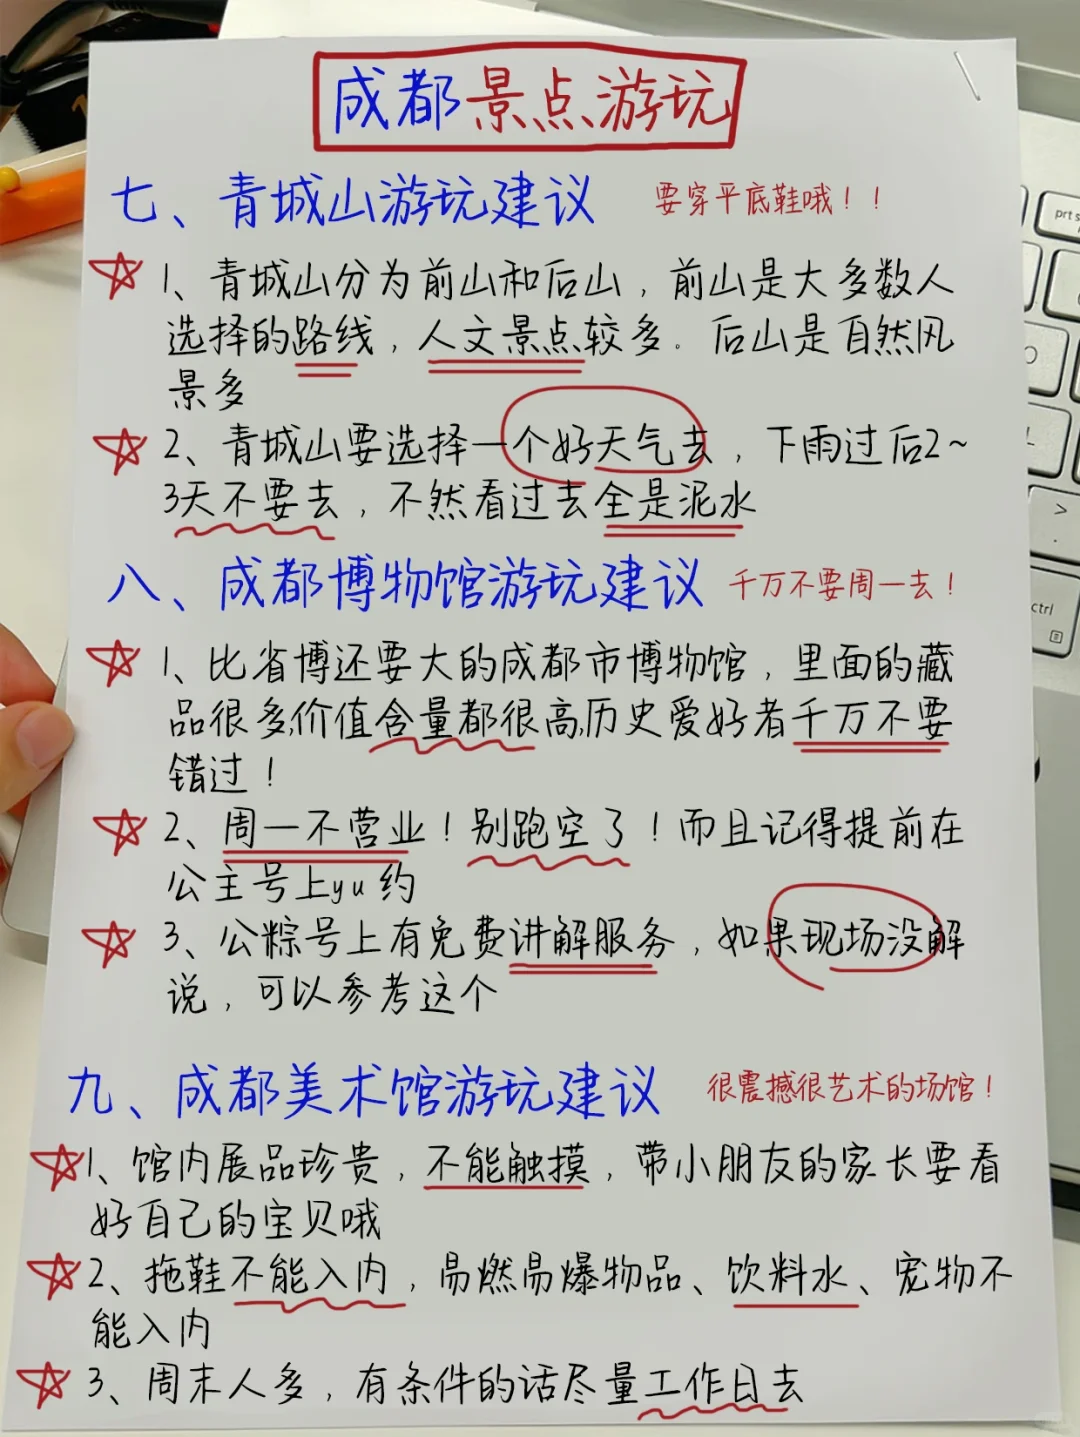 成都景点游玩
七、青城山游玩建议 要穿平底鞋哦！！
1、青城山分为前山和后山，前山是大多数人
选择的路线，人文景点较多。后山是自然风
景多
2、青城山要选择一个好天气去，下雨过后2~
3天不要去，不然看过去全是泥水
八、成都博物馆游玩建议 千万不要周一去！
1、比省博还要大的成都市博物馆，里面的藏
品很多,价值含量都很高,历史爱好者千万不要
错过！
2、周一不营业！别跑空了！而且记得提前在
公主号上yu约
3、公粽号上有免费讲解服务，如果现场没解
说，可以参考这个
九、成都美术馆游玩建议 很震撼很艺术的场馆！
1、馆内展品珍贵，不能触摸，带小朋友的家长要看
好自己的宝贝哦
2、拖鞋不能入内，易燃易爆物品、饮料水、宠物不
能入内
3、周末人多，有条件的话尽量工作日去
prt s
ctrl